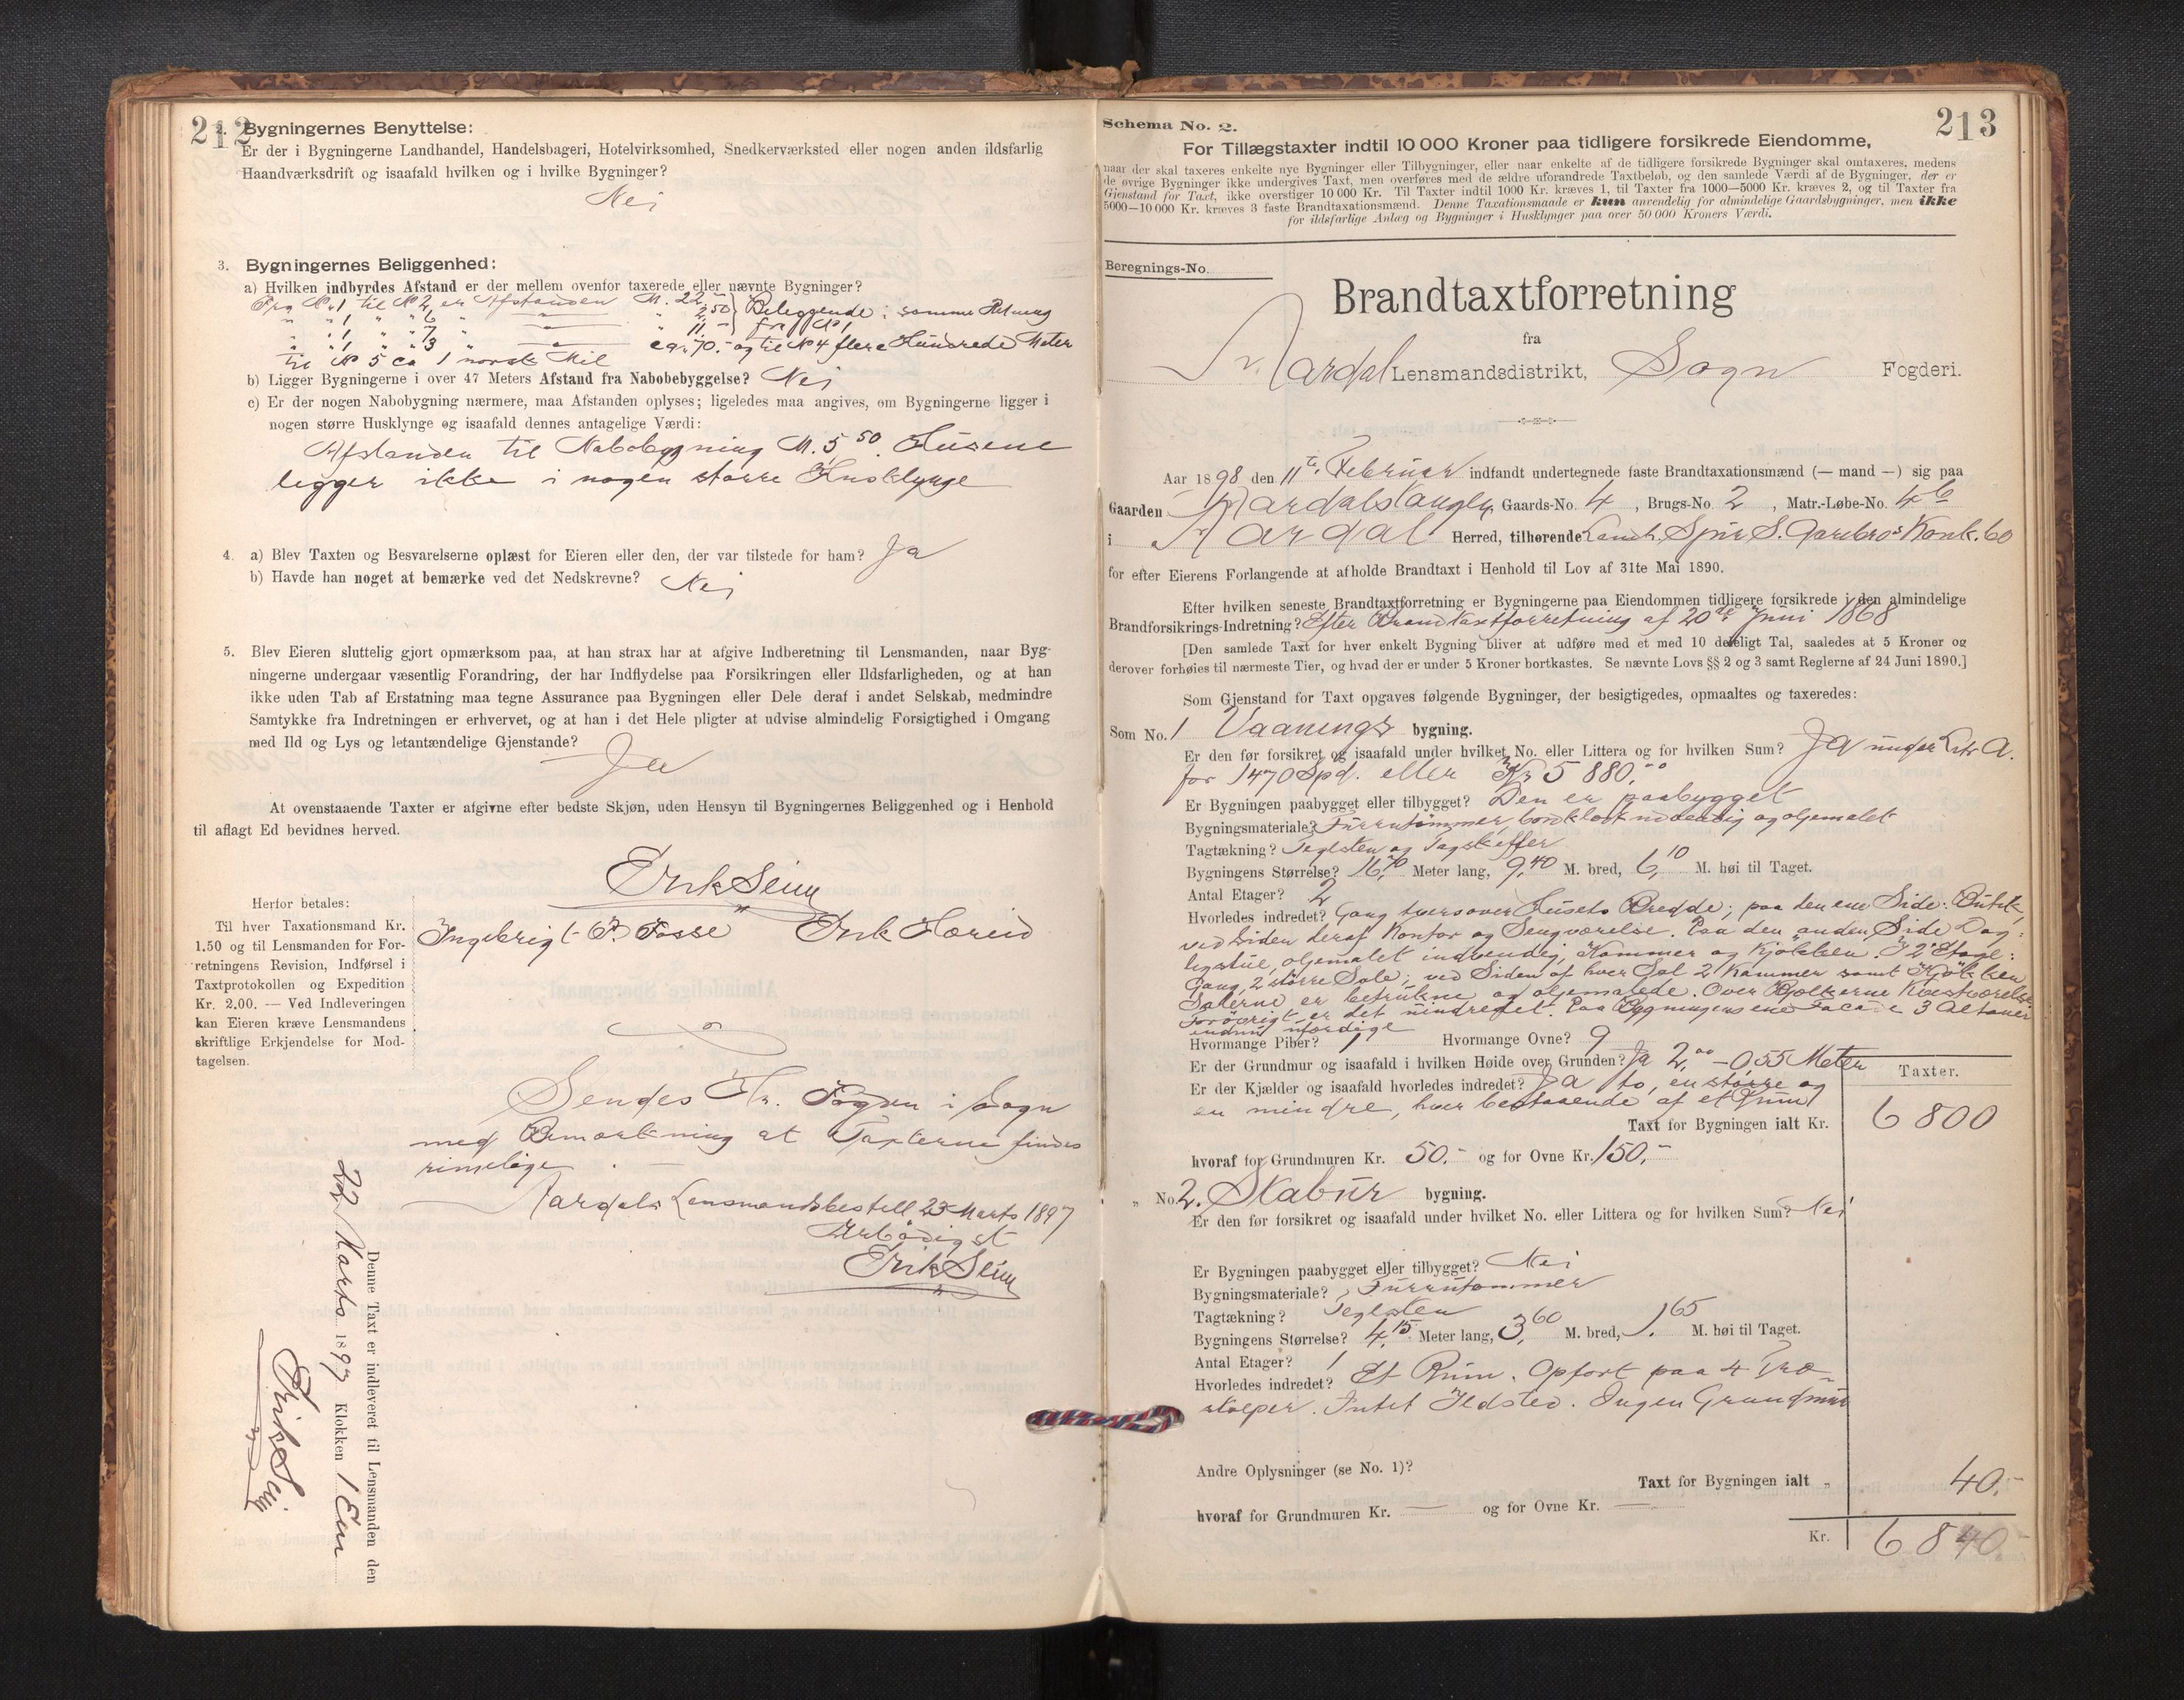 212
2. Bygningernes Benyttelse:
Er der i Bygningerne Landhandel, Handelsbageri, Hotelvirksomhed, Snedkerværksted eller nogen anden ildsfarlig
Haandværksdrift og isaafald hvilken og i hvilke Bygninger?
Nei
3. Bygningernes Beliggenhed:
a) Hvilken indbyrdes Afstand er der mellem ovenfor taxerede eller nævnte Bygninger?
Fra No 1 til No 2 er Afstanden M. 22.50 Beliggende i samme Retning
" " 1 " " 6 " " 2.50 fra No 1
" " 1 " " 7 " " 11.-
" " 1 " " 3 ca. 70.- og til No 4 flere Hundrede Meter
til No 5 ca 1 norsk Mil
b) Ligger Bygningerne i over 47 Meters Afstand fra Nabobebyggelse? Nei
c) Er der nogen Nabobygning nærmere, maa Afstanden oplyses; ligeledes maa angives, om Bygningerne ligger i
nogen større Husklynge og isaafald dennes antagelige Værdi:
Afstanden til Nabobygning M. 5,50. Husene
ligger ikke i nogen større Husklynge
4. a) Blev Taxten og Besvarelserne oplæst for Eieren eller den, der var tilstede for ham? Ja
b) Havde han noget at bemærke ved det Nedskrevne? Nei
5. Blev Eieren sluttelig gjort opmærksom paa, at han strax har at afgive Indberetning til Lensmanden, naar Byg-
ningerne undergaar væsentlig Forandring, der har Indflydelse paa Forsikringen eller Ildsfarligheden, og at han
ikke uden Tab af Erstatning maa tegne Assurance paa Bygningen eller Dele deraf i andet Selskab, medmindre
Samtykke fra Indretningen er erhvervet, og at han i det Hele pligter at udvise almindelig Forsigtighed i Omgang
med Ild og Lys og letantændelige Gjenstande?
Ja
At ovenstaaende Taxter er afgivne efter bedste Skjøn, uden Hensyn til Bygningernes Beliggenhed og i Henhold
til aflagt Ed bevidnes herved.
Erik Seim
Ingebrigt P. Fosse Erik Hæreid
Herfor betales:
Til hver Taxationsmand Kr.
1.50 og til Lensmanden for For-
retningens Revision, Indførsel i
Taxtprotokollen og Expedition
Kr. 2.00. — Ved Indleveringen
kan Eieren kræve Lensmandens
skriftlige Erkjendelse for Mod-
tagelsen.
Sendes Hr. Fogden i Sogn
med Bemærkning at Taxterne findes
rimelige.
Aardals Lensmandsbestill 23 Marts 1897
Ærbødigst
Erik Seim
Denne Taxt er indleveret til Lensmanden den
22 Marts 1897 Klokken 1 Em
Erik Seim
213
Schema No. 2.
For Tillægstaxter indtil 10 000 Kroner paa tidligere forsikrede Eiendomme,
naar der skal taxeres enkelte nye Bygninger eller Tilbygninger, eller naar enkelte af de tidligere forsikrede Bygninger skal omtaxeres, medens
de øvrige Bygninger ikke undergives Taxt, men overføres med de ældre uforandrede Taxtbeløb, og den samlede Værdi af de Bygninger, der er
Gjenstand for Taxt, ikke overstiger 10 000 Kr. Til Taxter indtil 1000 Kr. kræves 1, til Taxter fra 1000—5000 Kr. kræves 2, og til Taxter fra
5000—10 000 Kr. kræves 3 faste Brandtaxationsmænd. Denne Taxationsmaade er kun anvendelig for almindelige Gaardsbygninger, men ikke
for ildsfarlige Anlæg og Bygninger i Husklynger paa over 50 000 Kroners Værdi.
Beregnings-No.
Brandtaxtforretning
fra
Aardal Lensmandsdistrikt, Sogn Fogderi.
Aar 1898 den 11te Februar indfandt undertegnede faste Brandtaxationsmænd (— mand —) sig paa
Gaarden Aardalstangen, Gaards-No. 4, Brugs-No. 2, Matr.-Løbe-No. 4b
i Aardal Herred, tilhørende Landh. Spir S. Gareboes Konk.bo
for efter Eierens Forlangende at afholde Brandtaxt i Henhold til Lov af 31te Mai 1890.
Efter hvilken seneste Brandtaxtforretning er Bygningerne paa Eiendommen tidligere forsikrede i den almindelige
Brandforsikrings-Indretning? Efter Brandtaxtforretning af 20de Juni 1868
[Den samlede Taxt for hver enkelt Bygning bliver at udføre med et med 10 deleligt Tal, saaledes at 5 Kroner og
derover forhøies til nærmeste Tier, og hvad der er under 5 Kroner bortkastes. Se nævnte Lovs §§ 2 og 3 samt Reglerne af 24 Juni 1890.]
Som Gjenstand for Taxt opgaves følgende Bygninger, der besigtigedes, opmaaltes og taxeredes:
Som No. 1 Vaanings bygning.
Er den før forsikret og isaafald under hvilket No. eller Littera og for hvilken Sum? Ja under Litr A.
for 1470 Spd. eller Kr 5880.00
Er Bygningen paabygget eller tilbygget? Den er paabygget
Bygningsmateriale? Furrutømmer, bordklædt udvendig og oljemalet
Tagtækning? Teglsten og Tagskiffer
Bygningens Størrelse? 16,70 Meter lang, 9,40 M. bred, 6,10 M. høi til Taget.
Antal Etager? 2
Hvorledes indredet? Gang tversover Husets Bredde; paa den ene Side: Butik,
ved Siden deraf Kontor og Sengværelse. Paa den anden Side Dag-
ligstue, oljemalet indvendig, Kammer og Kjøkken. I 2 Etage:
Gang, 2 større Sale; ved Siden af hver Sal 2 Kammer samt Kjøkken
Salerne er betrukne og oljemalede. Over Bjelkerne Kvistværelse
Forøvrigt er det uindredet. Paa Bygningens ene Facade 3 Altaner
endnu ufærdige
Hvormange Piber? 1 Hvormange Ovne? 9
Er der Grundmur og isaafald i hvilken Høide over Grunden? Ja 2,00 – 0,55 Meter
Er der Kjælder og isaafald hvorledes indredet? Ja to, en større og
en mindre, hver bestaaende af et Rum
Taxter.
Taxt for Bygningen ialt Kr. 6800
hvoraf for Grundmuren Kr. 50.- og for Ovne Kr. 150,-
" No. 2. Stabur bygning.
Er den før forsikret og isaafald under hvilket No. eller Littera og for hvilken Sum? Nei
Er Bygningen paabygget eller tilbygget? Nei
Bygningsmateriale? Furrutømmer
Tagtækning? Teglsten
Bygningens Størrelse? 4,15 Meter lang, 3,60 M. bred, 1.65 M. høi til Taget.
Antal Etager? 1
Hvorledes indredet? Et Rum. Opført paa 4 Træ-
stolper. Intet Ildsted. Ingen Grundmur
Andre Oplysninger (se No. 1)?
Taxt for Bygningen ialt „ 40.-
hvoraf for Grundmuren Kr. — og for Ovne Kr. —
Kr. 6840